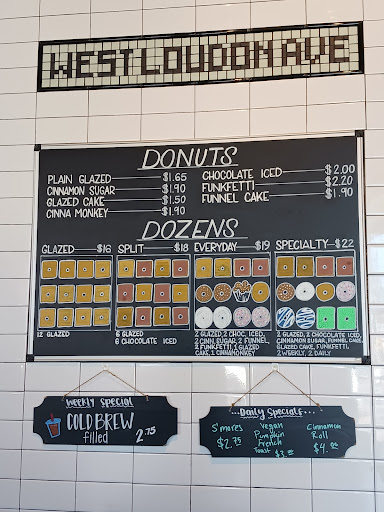 WEST LOUDON AVE
DONUTS
PLAIN GLAZED $1.65
CINNAMON SUGAR $1.90
GLAZED CAKE $1.50
CINNA MONKEY $1.90
CHOCOLATE ICED $2.00
FUNKFETTI $2.20
FUNNEL CAKE $1.90
DOZENS
GLAZED $16
12 GLAZED
SPLIT $18
6 GLAZED
6 CHOCOLATE ICED
EVERYDAY $19
2 GLAZED, 2 CHOC. ICED,
2 CINN. SUGAR, 2 FUNNEL,
2 FUNKFETTI, 1 GLAZED
CAKE, 1 CINNAMONKEY
SPECIALTY $22
2 GLAZED, 2 CHOCOLATE ICED,
CINNAMON SUGAR, FUNNEL CAKE,
GLAZED CAKE, FUNKFETTI,
2 WEEKLY, 2 DAILY
Weekly Special
COLD BREW
filled 2.75
...Daily Specials...
S'mores
$2.75
Vegan
Pumpkin
French
Toast $3.
Cinnamon
Roll
$4.